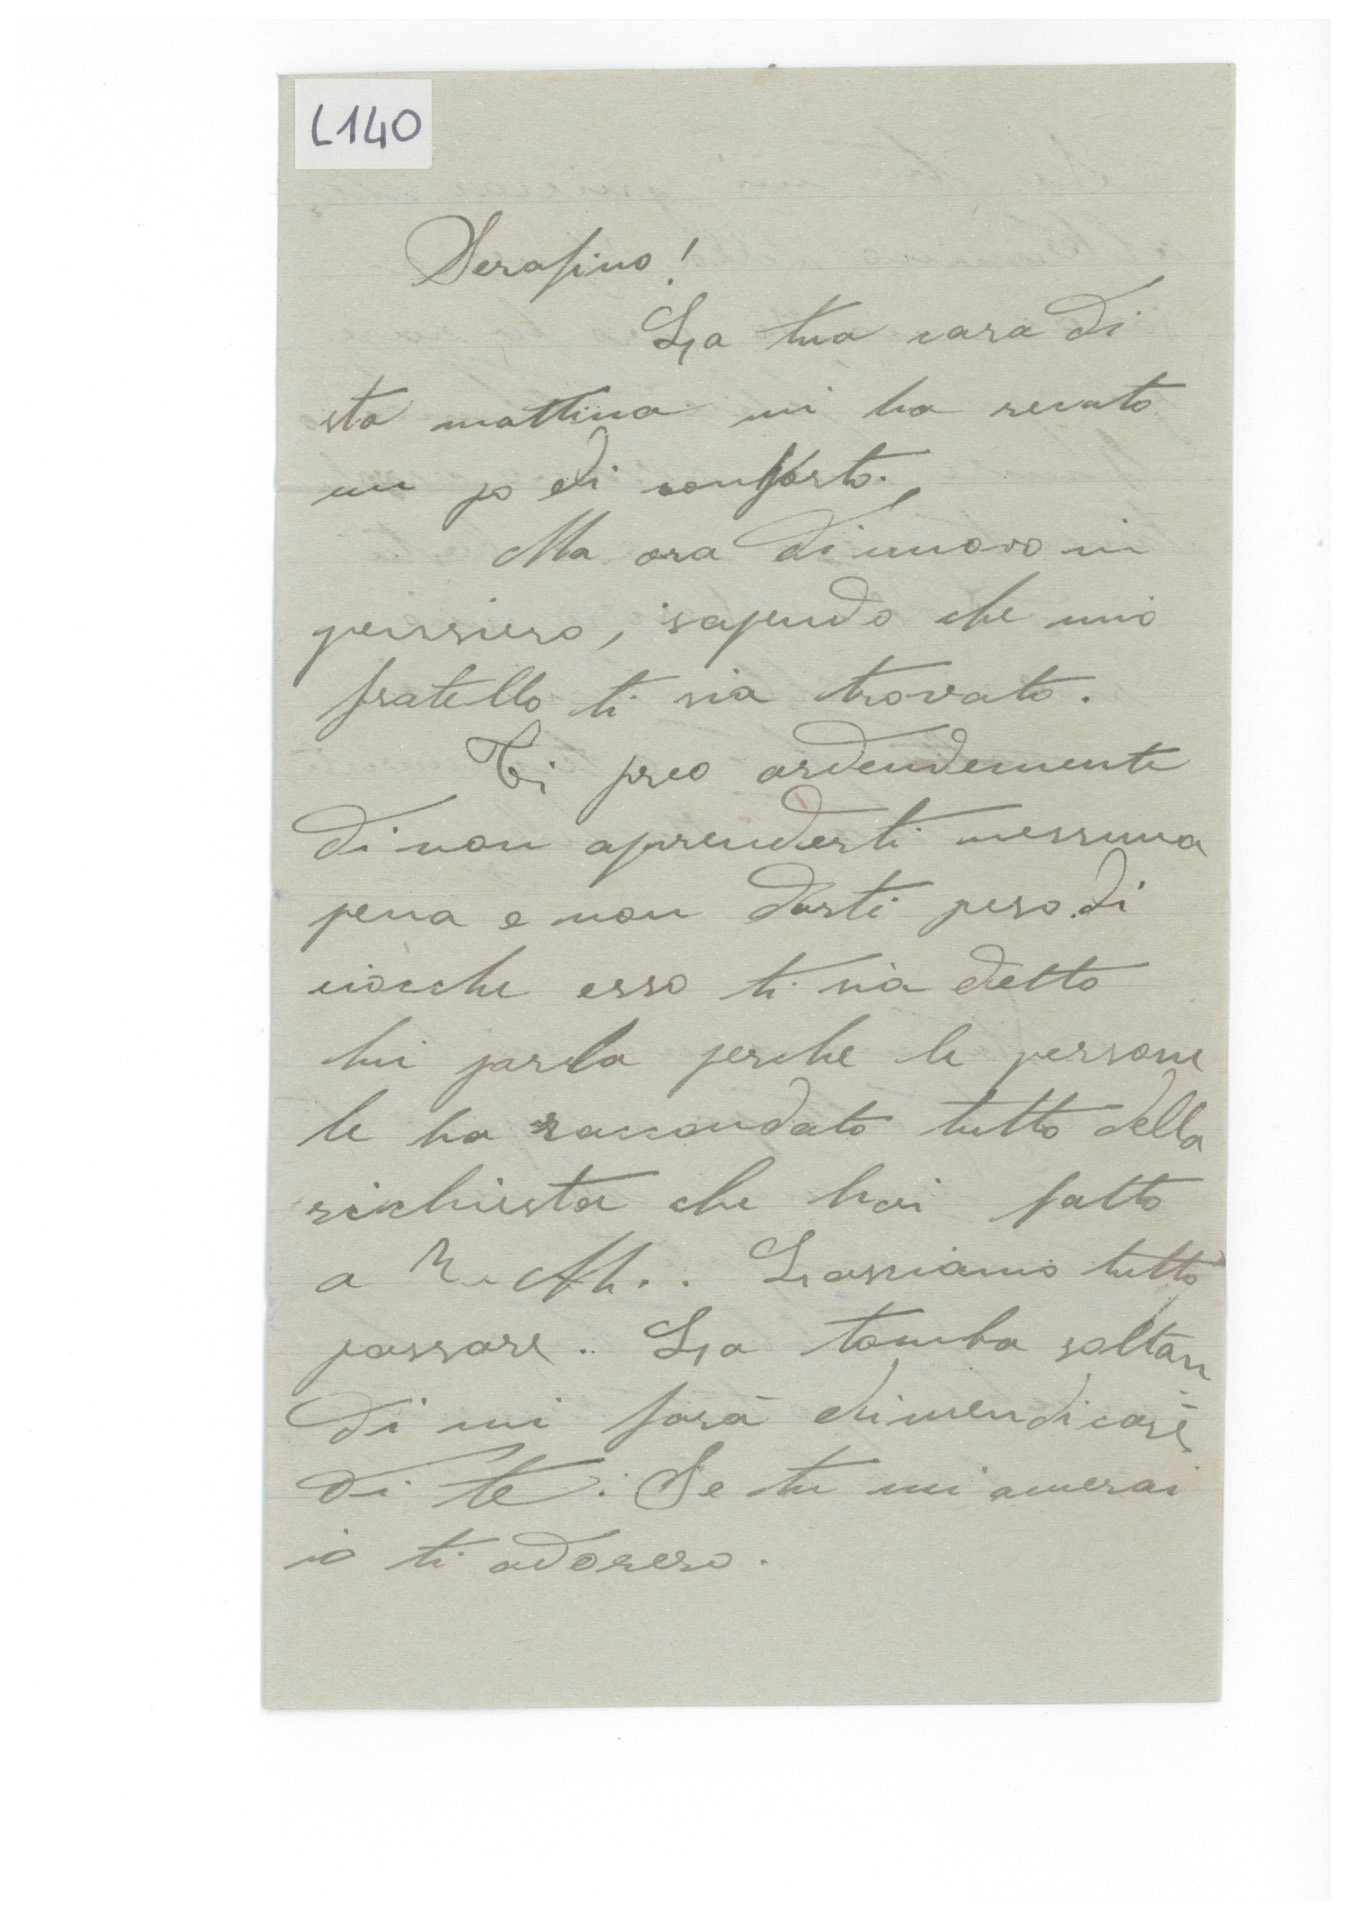 L140
Serafino!
La tua cara di
sta mattina mi ha recato
un po di conforto.
Ma ora di nuovo in
pensiero, sapendo che mio
fratello ti sia trovato.
Ti preo ardendemente
di non aprenderti nessuna
pena e non darti peso di
ciocche esso ti sia detto
lui parla perche le persone
le ha raccondato tutto della
richiesta che hai fatto
a M.. Lassiamo tutto
passare.. La tomba soltan
di mi farà dimendicare
di te. Se tu mi amerai
io ti adorero.